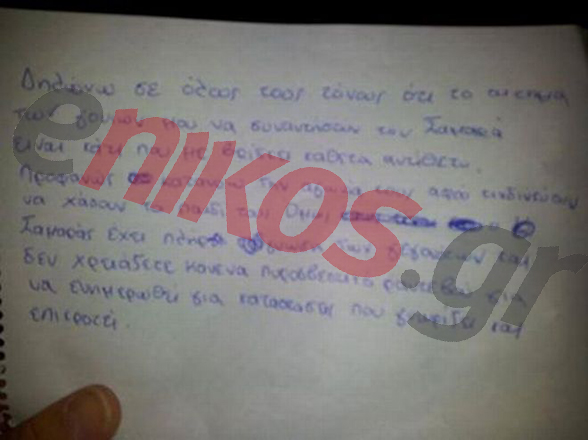 Δηλώνω σε όλους τους τόνους ότι το αίτημα
των γονιών μου να συναντήσουν τον Σαμαρά
είναι κάτι που με βρίσκει κάθετα αντίθετο.
Προφανώς κατανοώ την αγωνία τους αφού κινδινεύουν
να χάσουν το παιδί τους. Όμως ο
Σαμαράς έχει πλήρη γνώση των γεγονότων και
δεν χρειάζετε κανένα πυροσβεστικό ραντεβού για
να ενημερωθεί για καταστάσεις που γνωρίζει και
επικροτεί.
enikos.gr